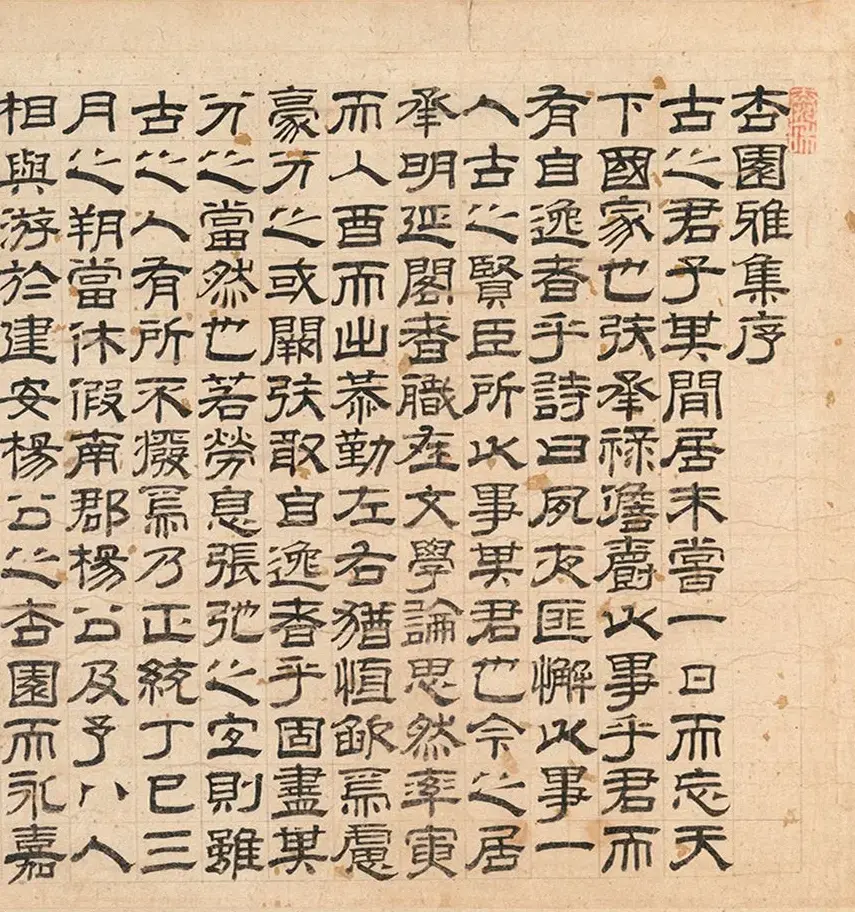 杏園雅集序
古之君子其間居未嘗一日而忘天
下國家也矧承祿儋爵以事乎君而
有自逸者乎詩曰夙夜匪懈以事一
人古之賢臣所以事其君也今之居
承明延閣者職在文學論思然率寅
而入酉而出恭勤左右猶恒歉焉慮
豪分之或闕矧敢自逸者乎固盡其
分之當然也若勞息張弛之宜則雖
古之人有所不廢焉乃正統丁巳三
月之朔當休假南郡楊公及予八人
相與游於建安楊公之杏園而永嘉